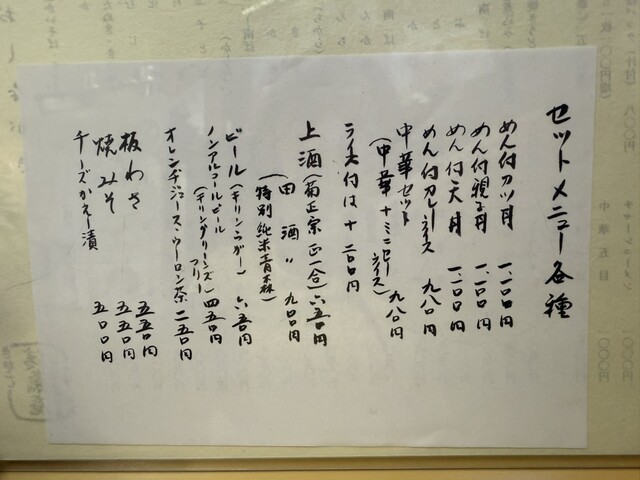 セットメニュー各種
めん付カツ丼 一、二〇〇円
めん付親子丼 一、一〇〇円
めん付天丼 一、二〇〇円
めん付カレーライス 九八〇円
中華セット 九八〇円
(中華+ミニカレーライス)
ライス付は+二〇〇円
上酒(菊正宗 正一合)六五〇円
(田酒 〃 九〇〇円
特別純米青森)
ビール(キリンラガー) 六五〇円
ノンアルコールビール 四五〇円
(キリングリーンズフリー)
オレンヂジュース・ウーロン茶 二五〇円
板わさ 五五〇円
焼みそ 五五〇円
チーズかえし漬 五〇〇円